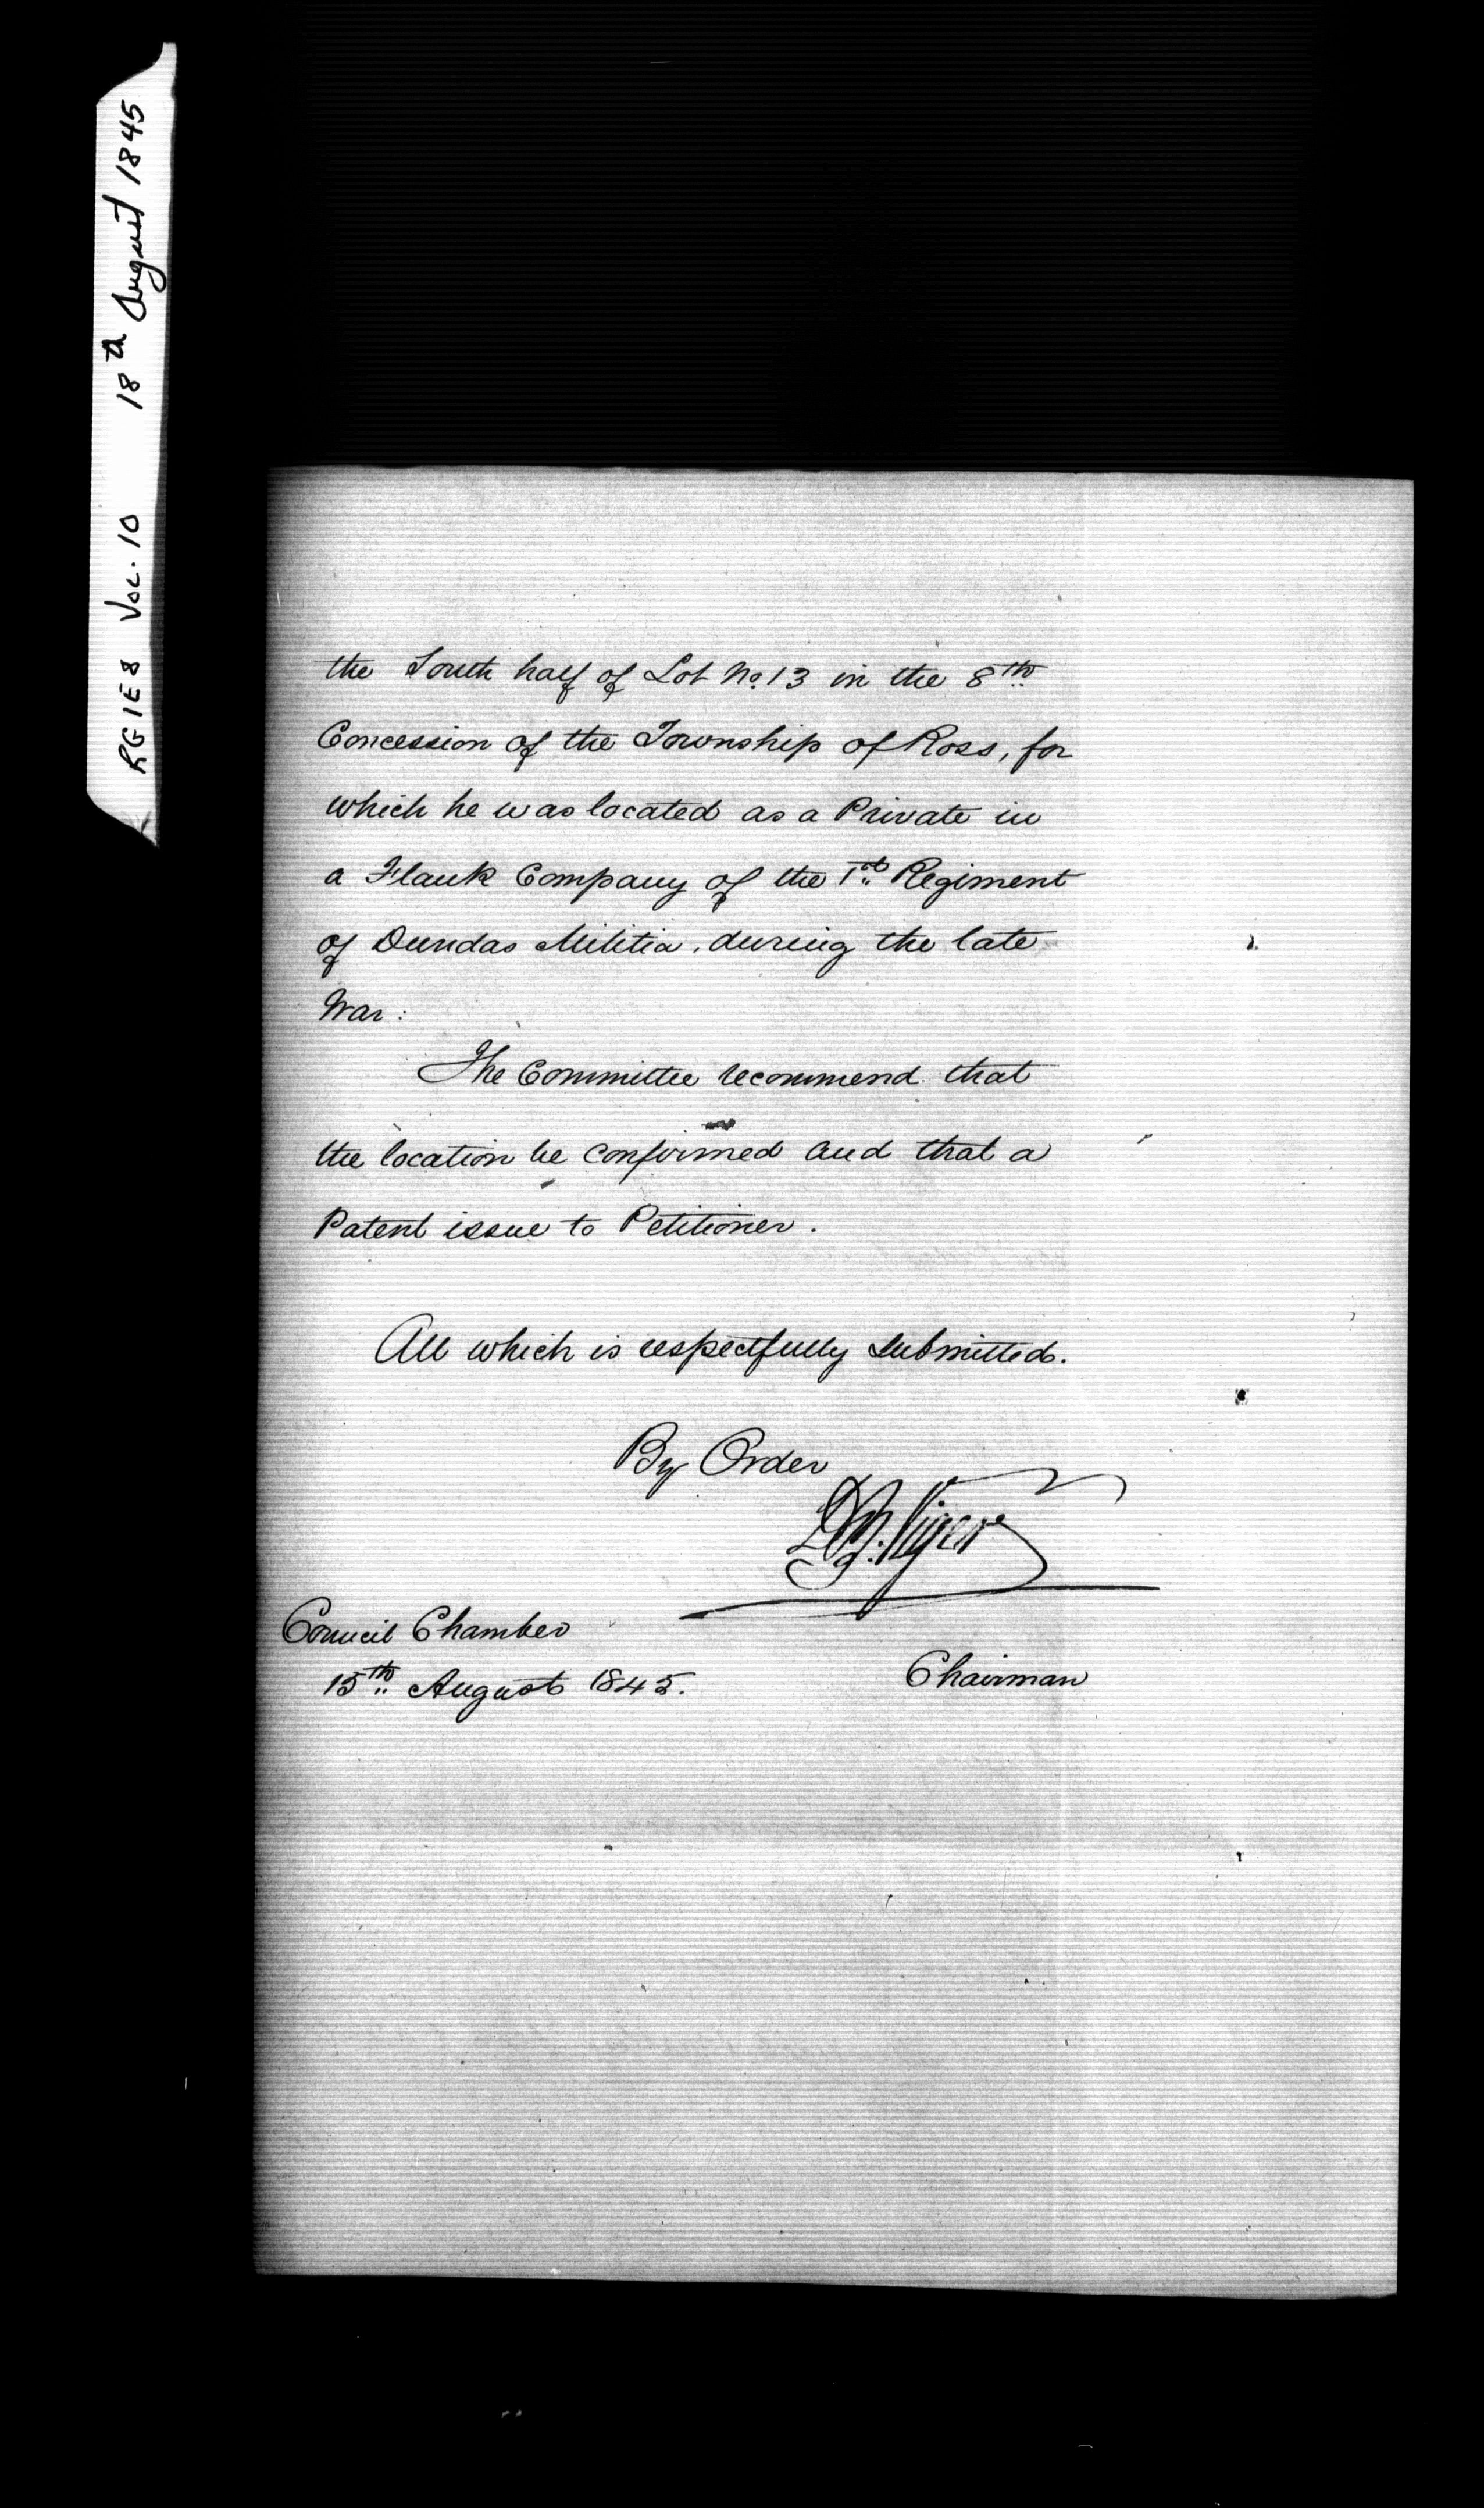 RG1E8 Vol. 10 18th August 1845
the South half of Lot No. 13 in the 8th
Concession of the Township of Ross, for
which he was located as a Private in
a Flank Company of the 1st Regiment
of Dundas Militia, during the late
War:
The Committee recommend that
the location be confirmed and that a
Patent issue to Petitioner.
All which is respectfully submitted.
By Order
D.B. Viger
Council Chamber
15th August 1845.
Chairman